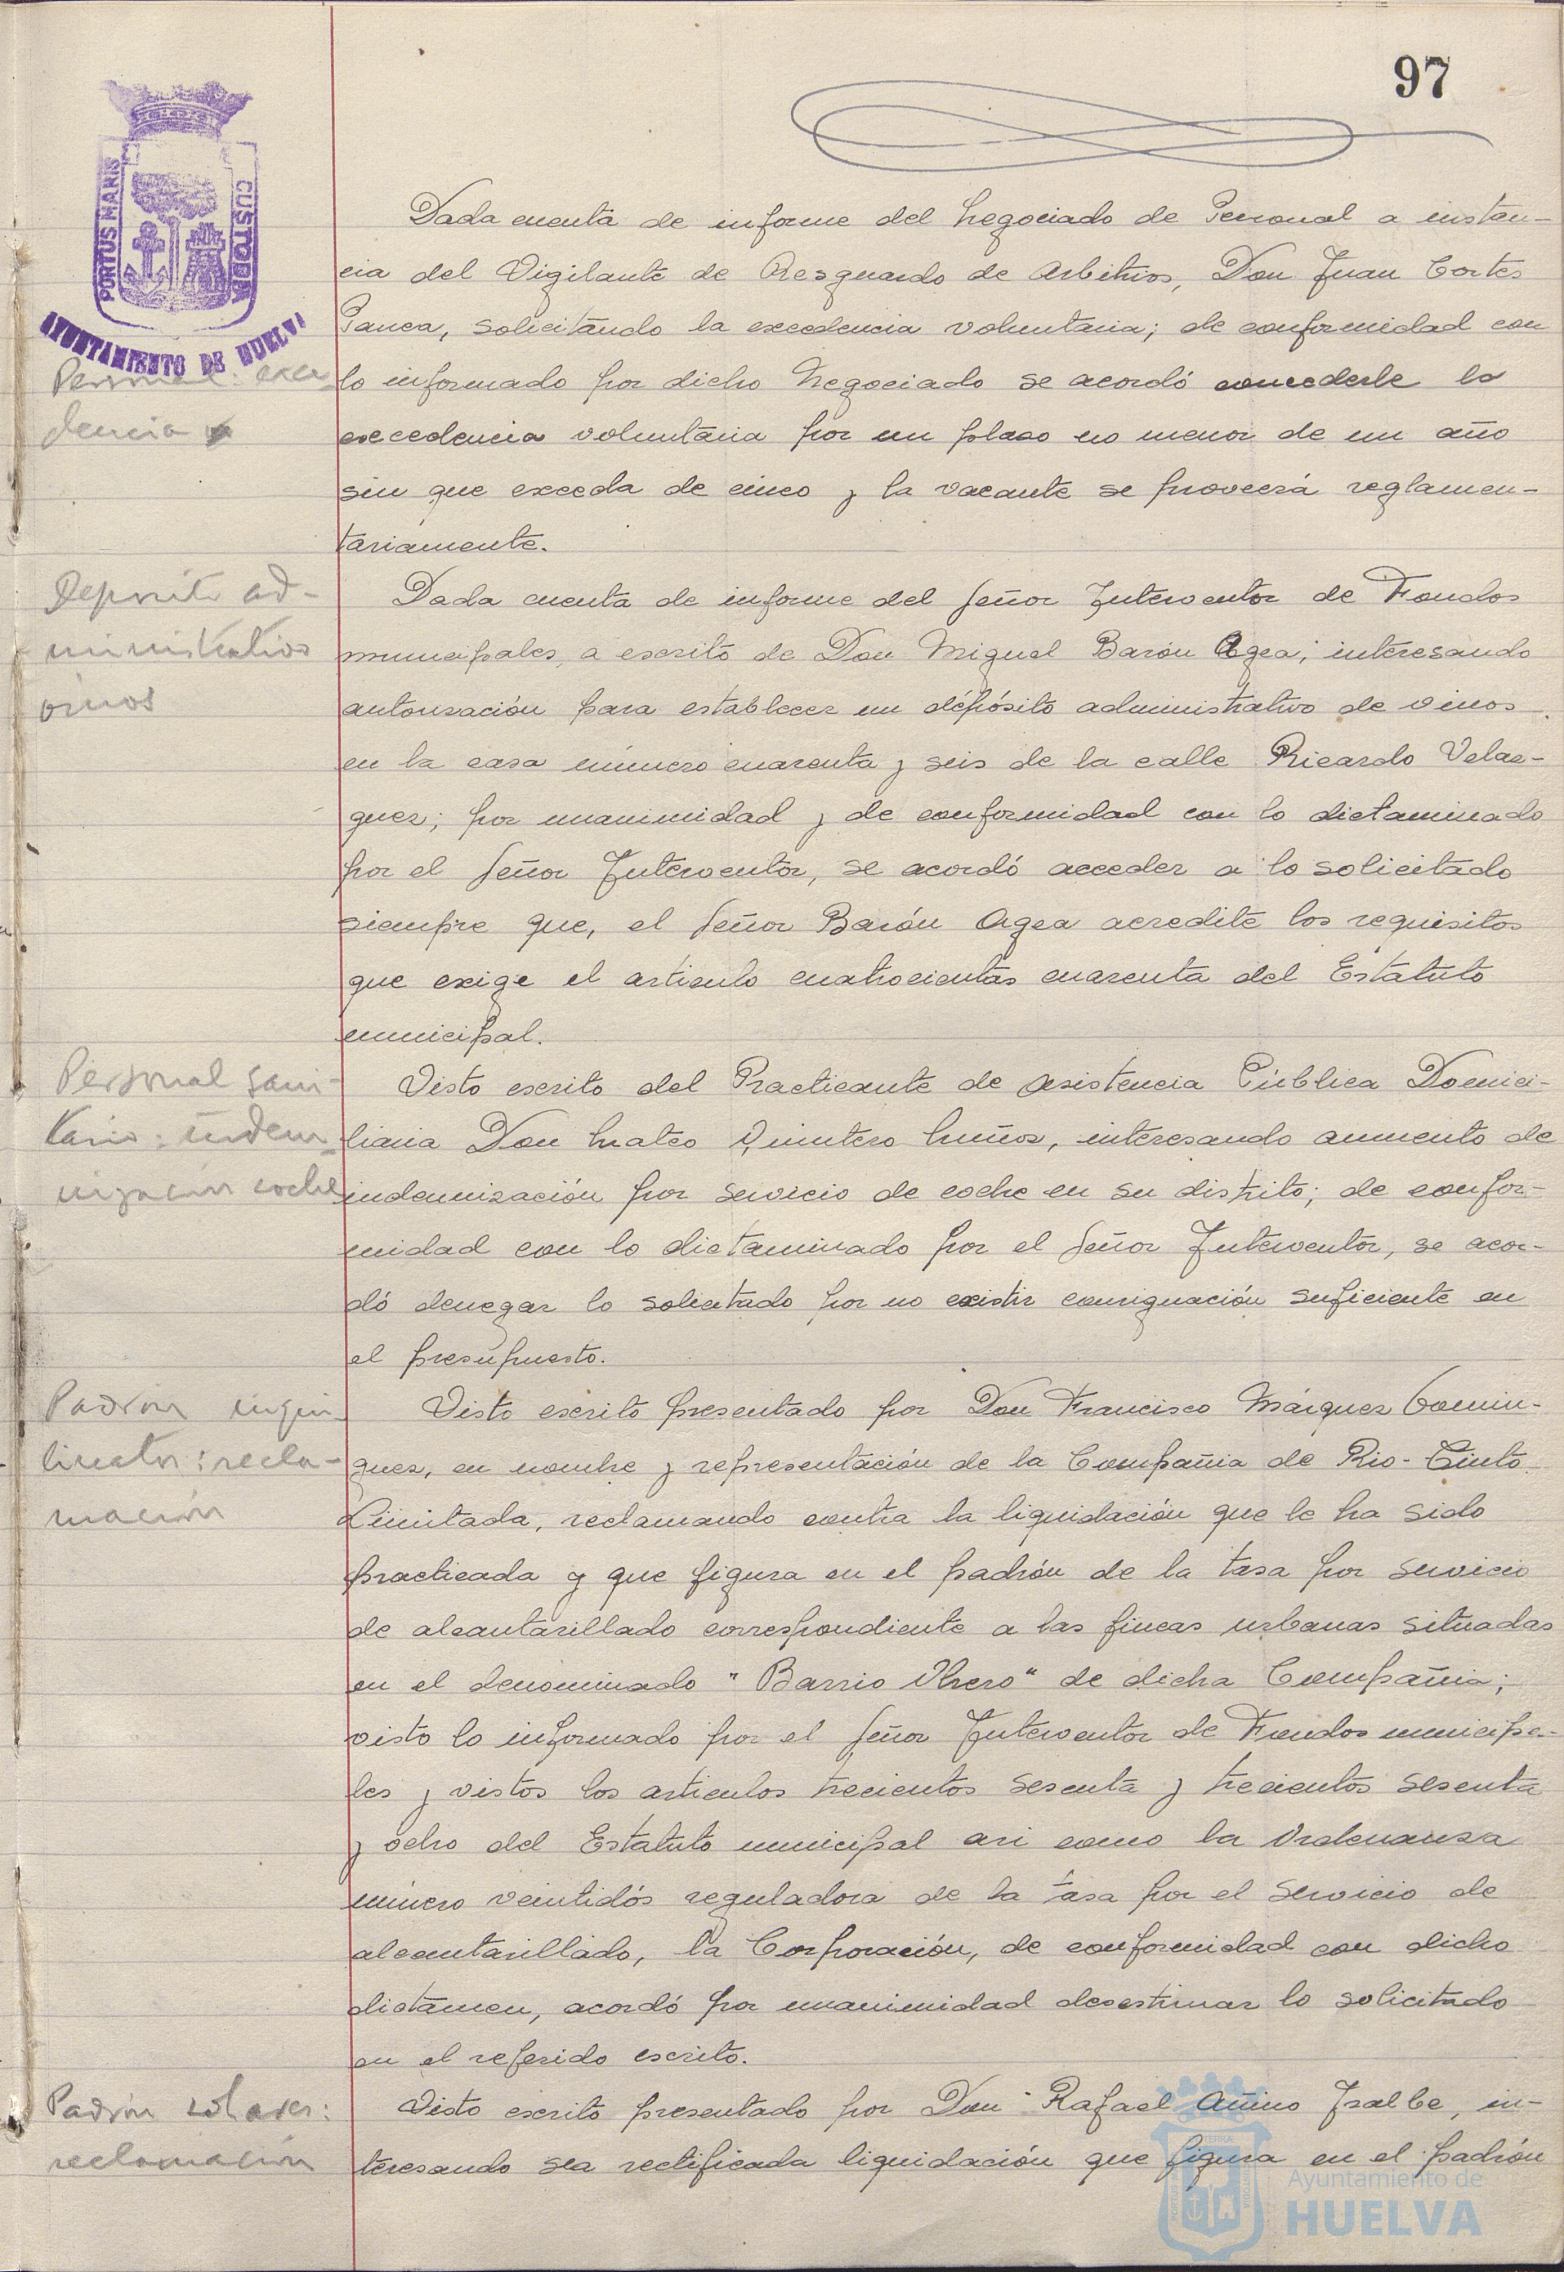 97
PORTUS MARIS
CUSTODIA
AYUNTAMIENTO DE HUELVA
Personal: exce
dencia
Dada cuenta de informe del Negociado de Personal a instan-
cia del Vigilante de Resguardo de Arbitrios, Don Juan Cortes
Ponce, solicitando la excedencia voluntaria; de conformidad con
lo informado por dicho Negociado se acordó concederle la
excedencia voluntaria por un plazo no menor de un año
sin que exceda de cinco y la vacante se proveerá reglamen-
tariamente.
Deposito ad-
ministrativo
vinos
Dada cuenta de informe del Señor Interventor de Fondos
municipales, a escrito de Don Miguel Barón Agea; interesando
autorización para establecer un depósito administrativo de vinos
en la casa número cuarenta y seis de la calle Ricardo Velaz-
quez; por unanimidad y de conformidad con lo dictaminado
por el Señor Interventor, se acordó acceder a lo solicitado
siempre que, el Señor Barón Agea acredite los requisitos
que exige el articulo cuatrocientos cuarenta del Estatuto
municipal.
Personal sani-
tario: indem
nización coche
Visto escrito del Practicante de Asistencia Pública Domici-
liaria Don Mateo Quintero Muñoz, interesando aumento de
indemnización por servicio de coche en su distrito; de confor-
midad con lo dictaminado por el Señor Interventor, se acor-
dó denegar lo solicitado por no existir consignación suficiente en
el presupuesto.
Padron inqui-
linatos: recla-
mación
Visto escrito presentado por Don Francisco Márquez Domin-
guez, en nombre y representación de la Compañia de Rio-Tinto
Limitada, reclamando contra la liquidación que le ha sido
practicada y que figura en el padrón de la tasa por servicio
de alcantarillado correspondiente a las fincas urbanas situadas
en el denominado "Barrio Obrero" de dicha Compañia;
visto lo informado por el Señor Interventor de Fondos municipa-
les y vistos los articulos trecientos sesenta y trecientos sesenta
y ocho del Estatuto municipal asi como la Ordenanza
número veintidós reguladora de la tasa por el servicio de
alcantarillado, la Corporación, de conformidad con dicho
dictámen, acordó por unanimidad desestimar lo solicitado
en el referido escrito.
Padrón solares:
reclamación
Visto escrito presentado por Don Rafael, in-
teresando sea rectificada liquidación que figura en el padrón
Ayuntamiento de
HUELVA